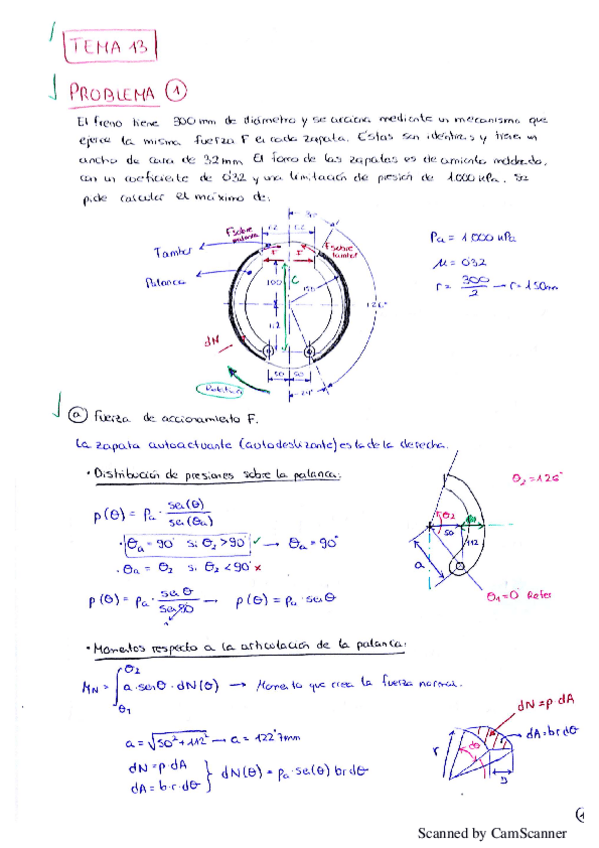 TEMA 13
PROBLEMA 1
El freno tiene 300 mm de diámetro y se acciona mediante un mecanismo que
ejerce la misma fuerza F en cada zapata. Éstas son idénticas y tienen un
ancho de cara de 32 mm. El forro de las zapatas es de amianto moldeado,
con un coeficiente de 0'32 y una limitación de presión de 1.000 kPa. Se
pide calcular el máximo de:
Tambor
Palanca
F sobre palanca
F sobre tambor
12 12
F F
100
C
150
126°
112
dN
50 50
24°
Rotación
Pa = 1.000 kPa
μ = 0'32
r = 300/2 → r = 150mm
a Fuerza de accionamiento F.
La zapata autoactuante (autodeslizante) es la de la derecha.
· Distribución de presiones sobre la palanca:
p(θ) = Pa · sen(θ)/sen(θa)
· θa = 90° si θ2 > 90° ✓ → θa = 90°
· θa = θ2 si θ2 < 90° ×
p(θ) = Pa · sen θ/sen 90 → p(θ) = Pa · sen θ
θ2 = 126°
θ2
50
112
a
θ1 = 0° Refer
· Momentos respecto a la articulación de la palanca:
MN = ∫ θ1 θ2 a · sen θ · dN(θ) → Momento que crea la fuerza normal.
a = √50² + 112² → a = 122'7mm
dN = p · dA
dA = b · r · dθ
dN(θ) = Pa · sen(θ) b r dθ
dN = p · dA
dA = b r dθ
r
dθ
b
Scanned by CamScanner